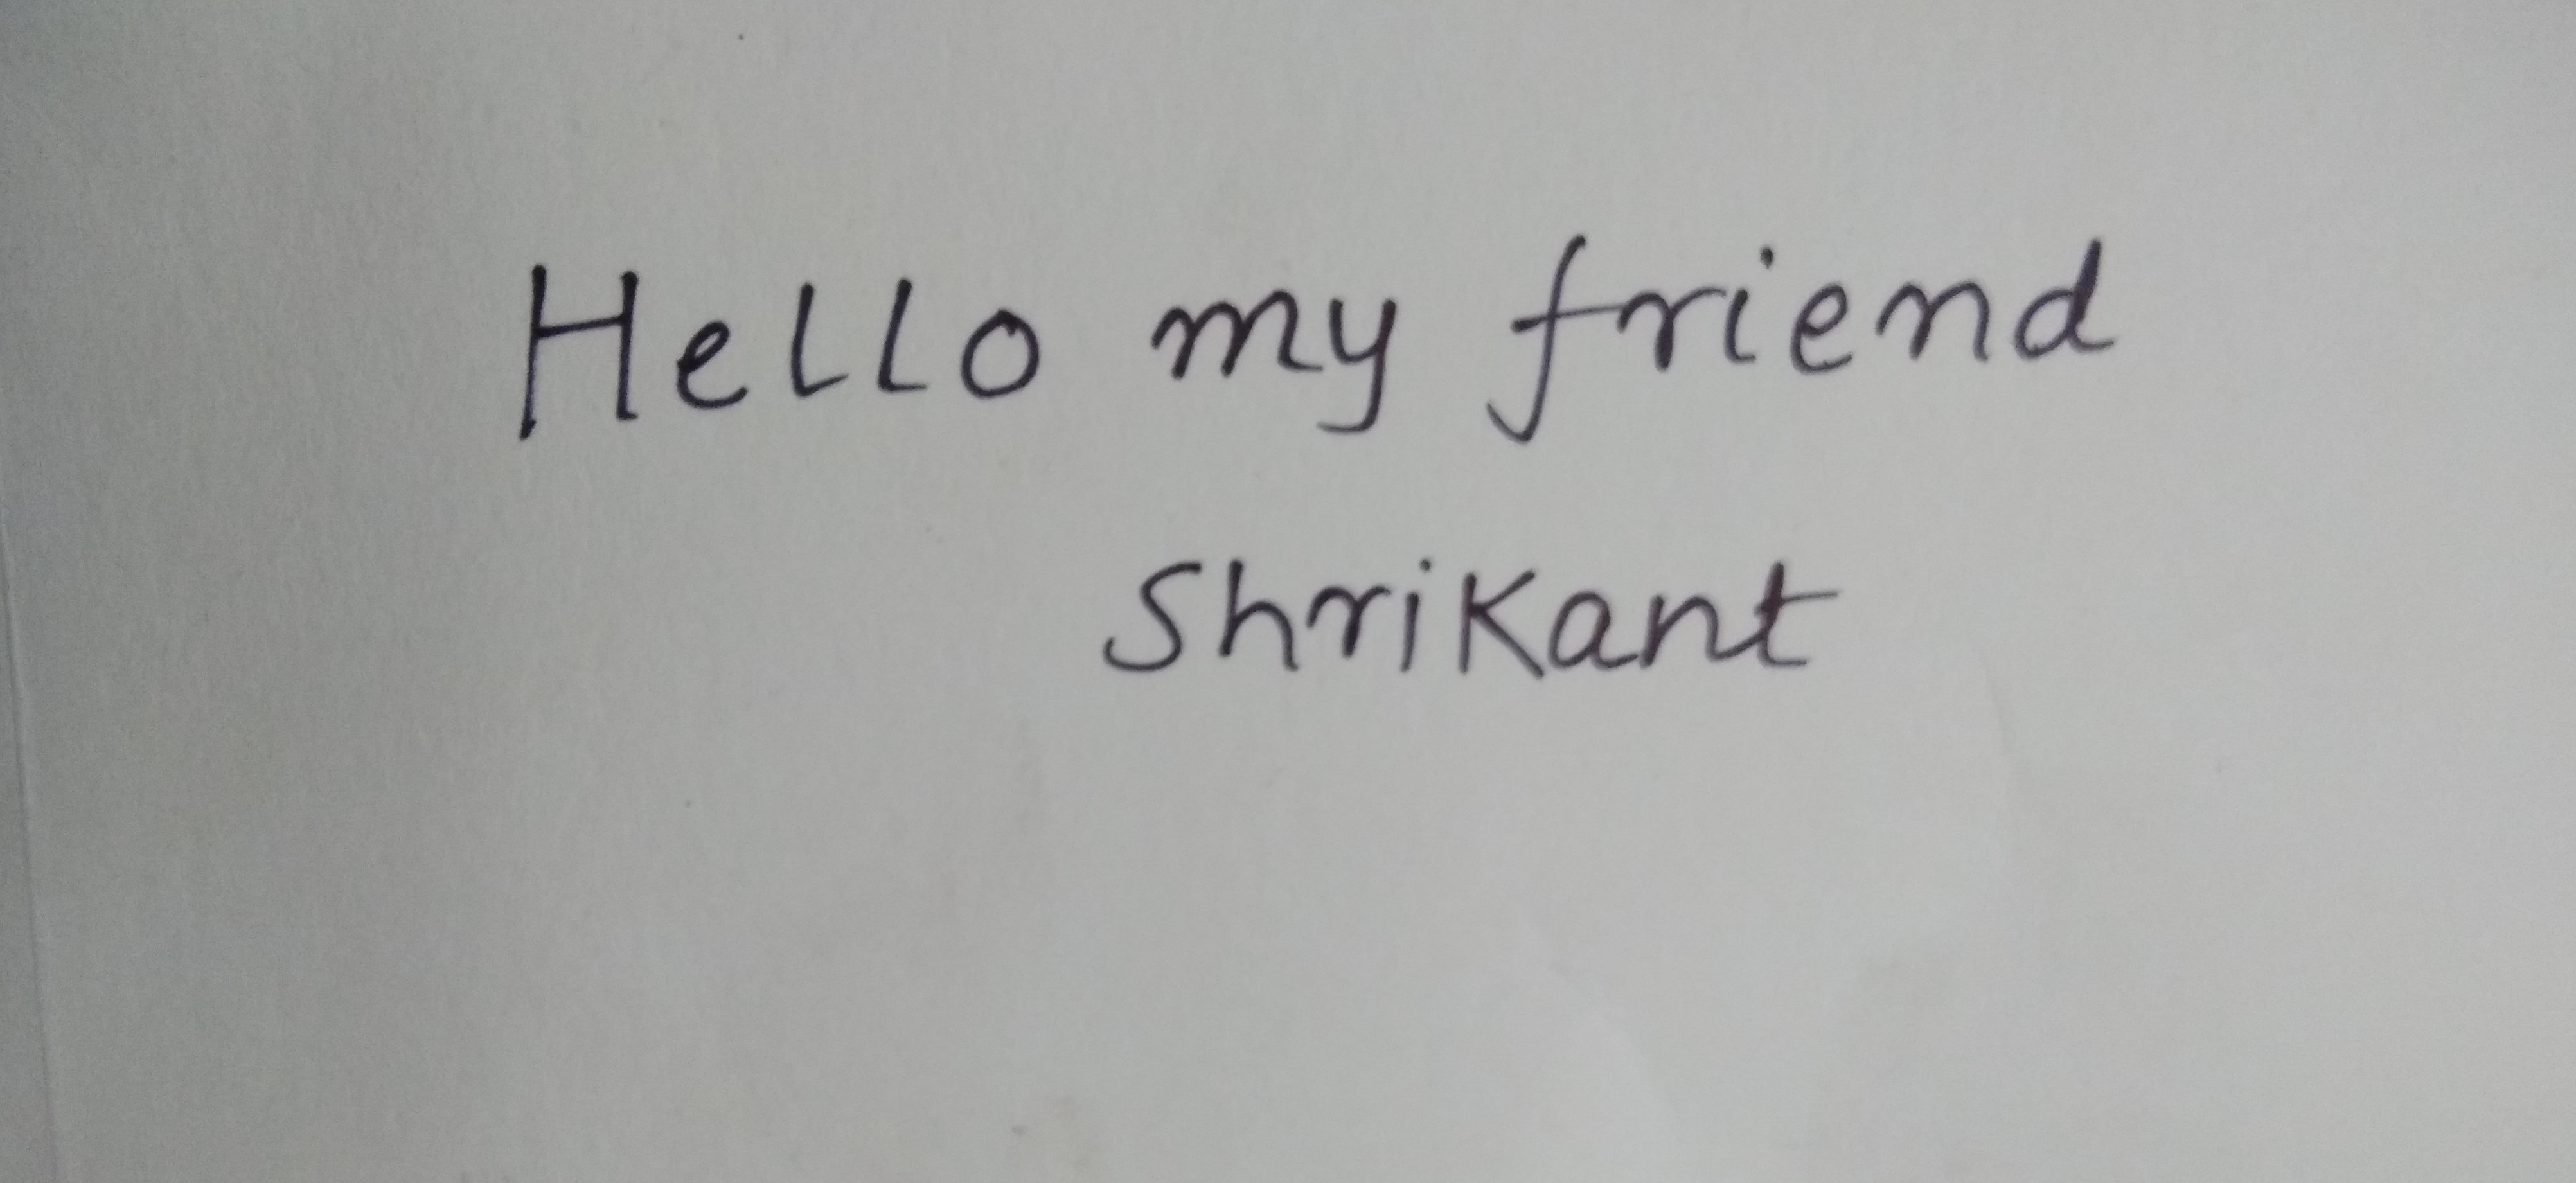 Hello my friend
Shrikant